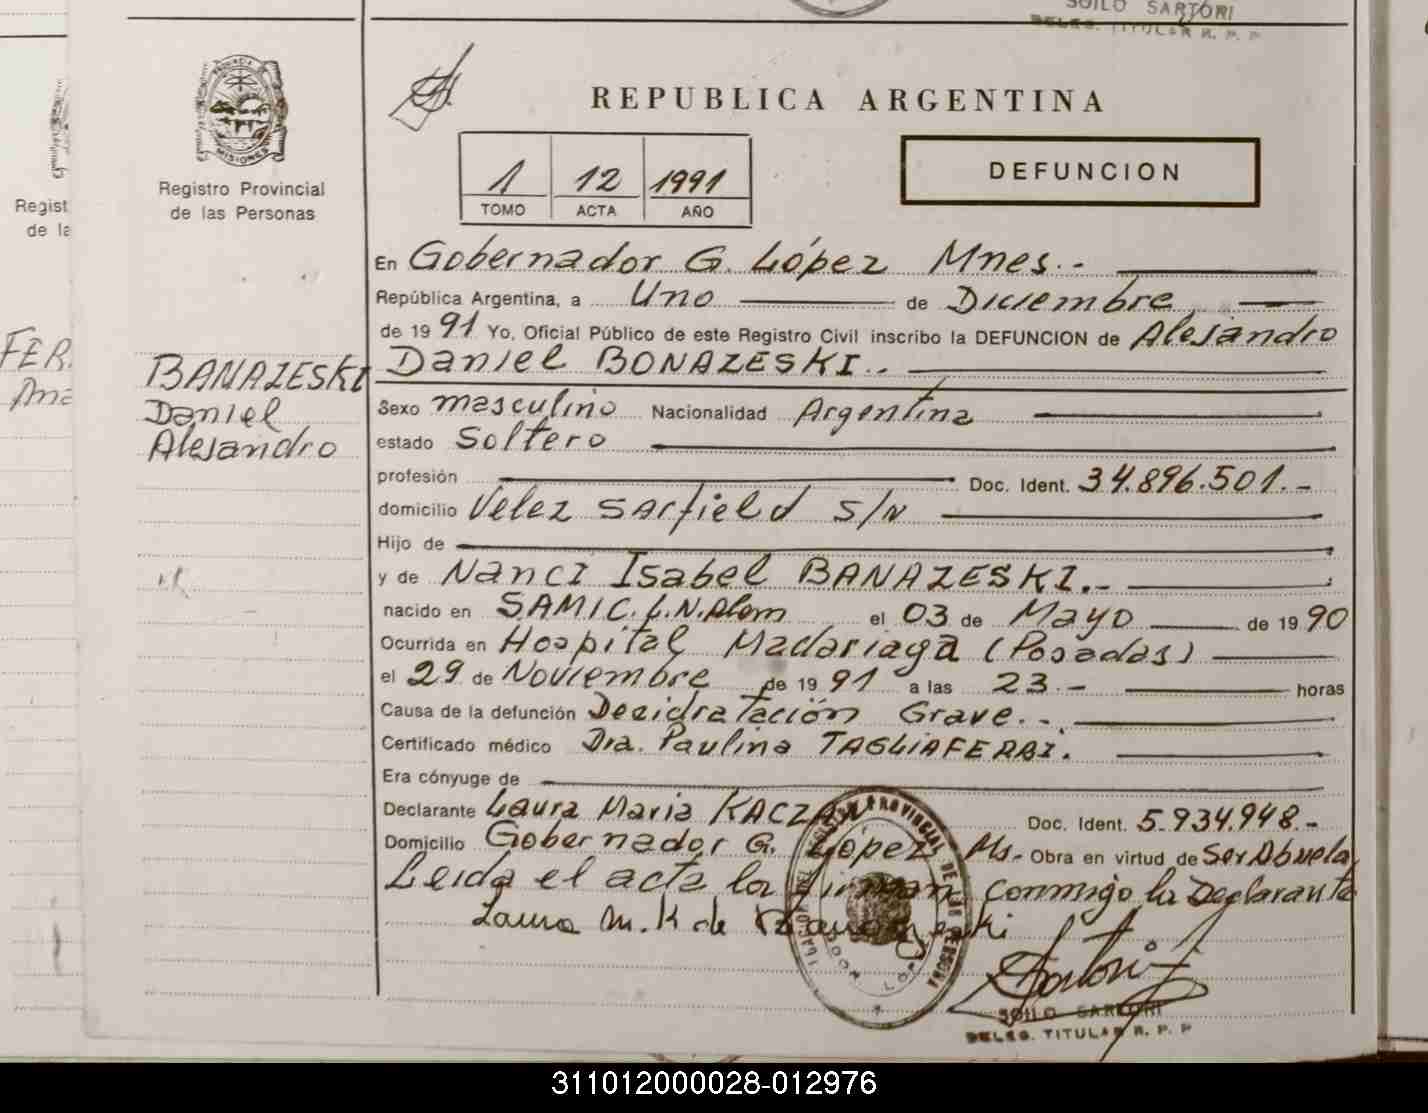 SOILO SARTORI
DELEG. TITULAR R. P. P
PROVINCIA DE
MISIONES
Registro Provincial
de las Personas
REPUBLICA ARGENTINA
1 12 1991
TOMO ACTA AÑO
DEFUNCION
Regist
de la
En Gobernador G. López Mnes.-
República Argentina, a Uno de Diciembre
de 1991 Yo, Oficial Público de este Registro Civil inscribo la DEFUNCION de Alejandro
Daniel BONAZESKI.-
FER
Ana
BANAZESKI
Daniel
Alejandro
Sexo masculino Nacionalidad Argentina
estado Soltero
profesión Doc. Ident. 34.896.501.-
domicilio Velez Sarfield S/N
Hijo de
y de Nanci Isabel BANAZESKI.-
nacido en SAMIC. L.N. Alem el 03 de Mayo de 1990
Ocurrida en Hospital Madariaga (Posadas)
el 29 de Noviembre de 1991 a las 23.- horas
Causa de la defunción Decidratación Grave.-
Certificado médico Dra. Paulina TAGLIAFERRI.
Era cónyuge de
Declarante Laura Maria Doc. Ident. 5.934.948.-
Domicilio Gobernador G. López Ms.- Obra en virtud de Ser Abuela
Leida el acta la firman conmigo la Declarante
Laura M. K de Banazeski
Sartori
SOILO SARTORI
DELEG. TITULAR R. P. P
311012000028-012976